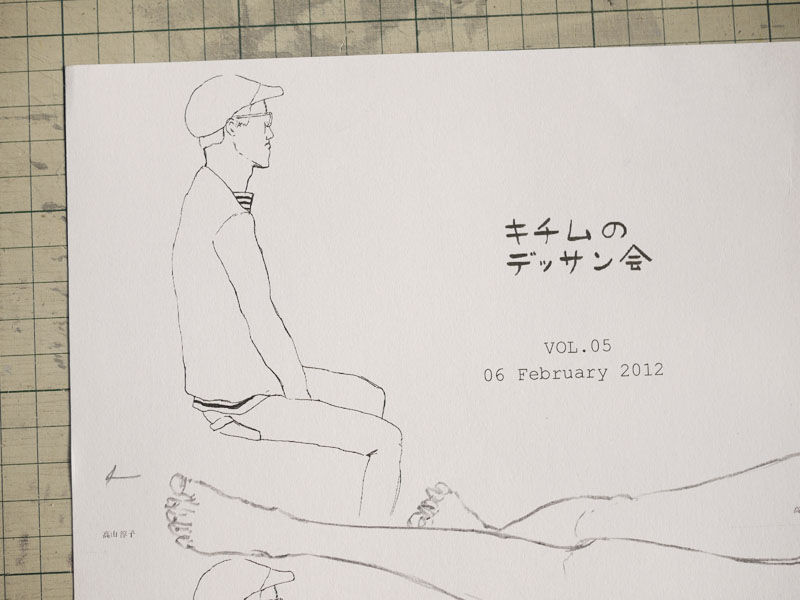 キチムの
デッサン会
VOL.05
06 February 2012
高山淳子